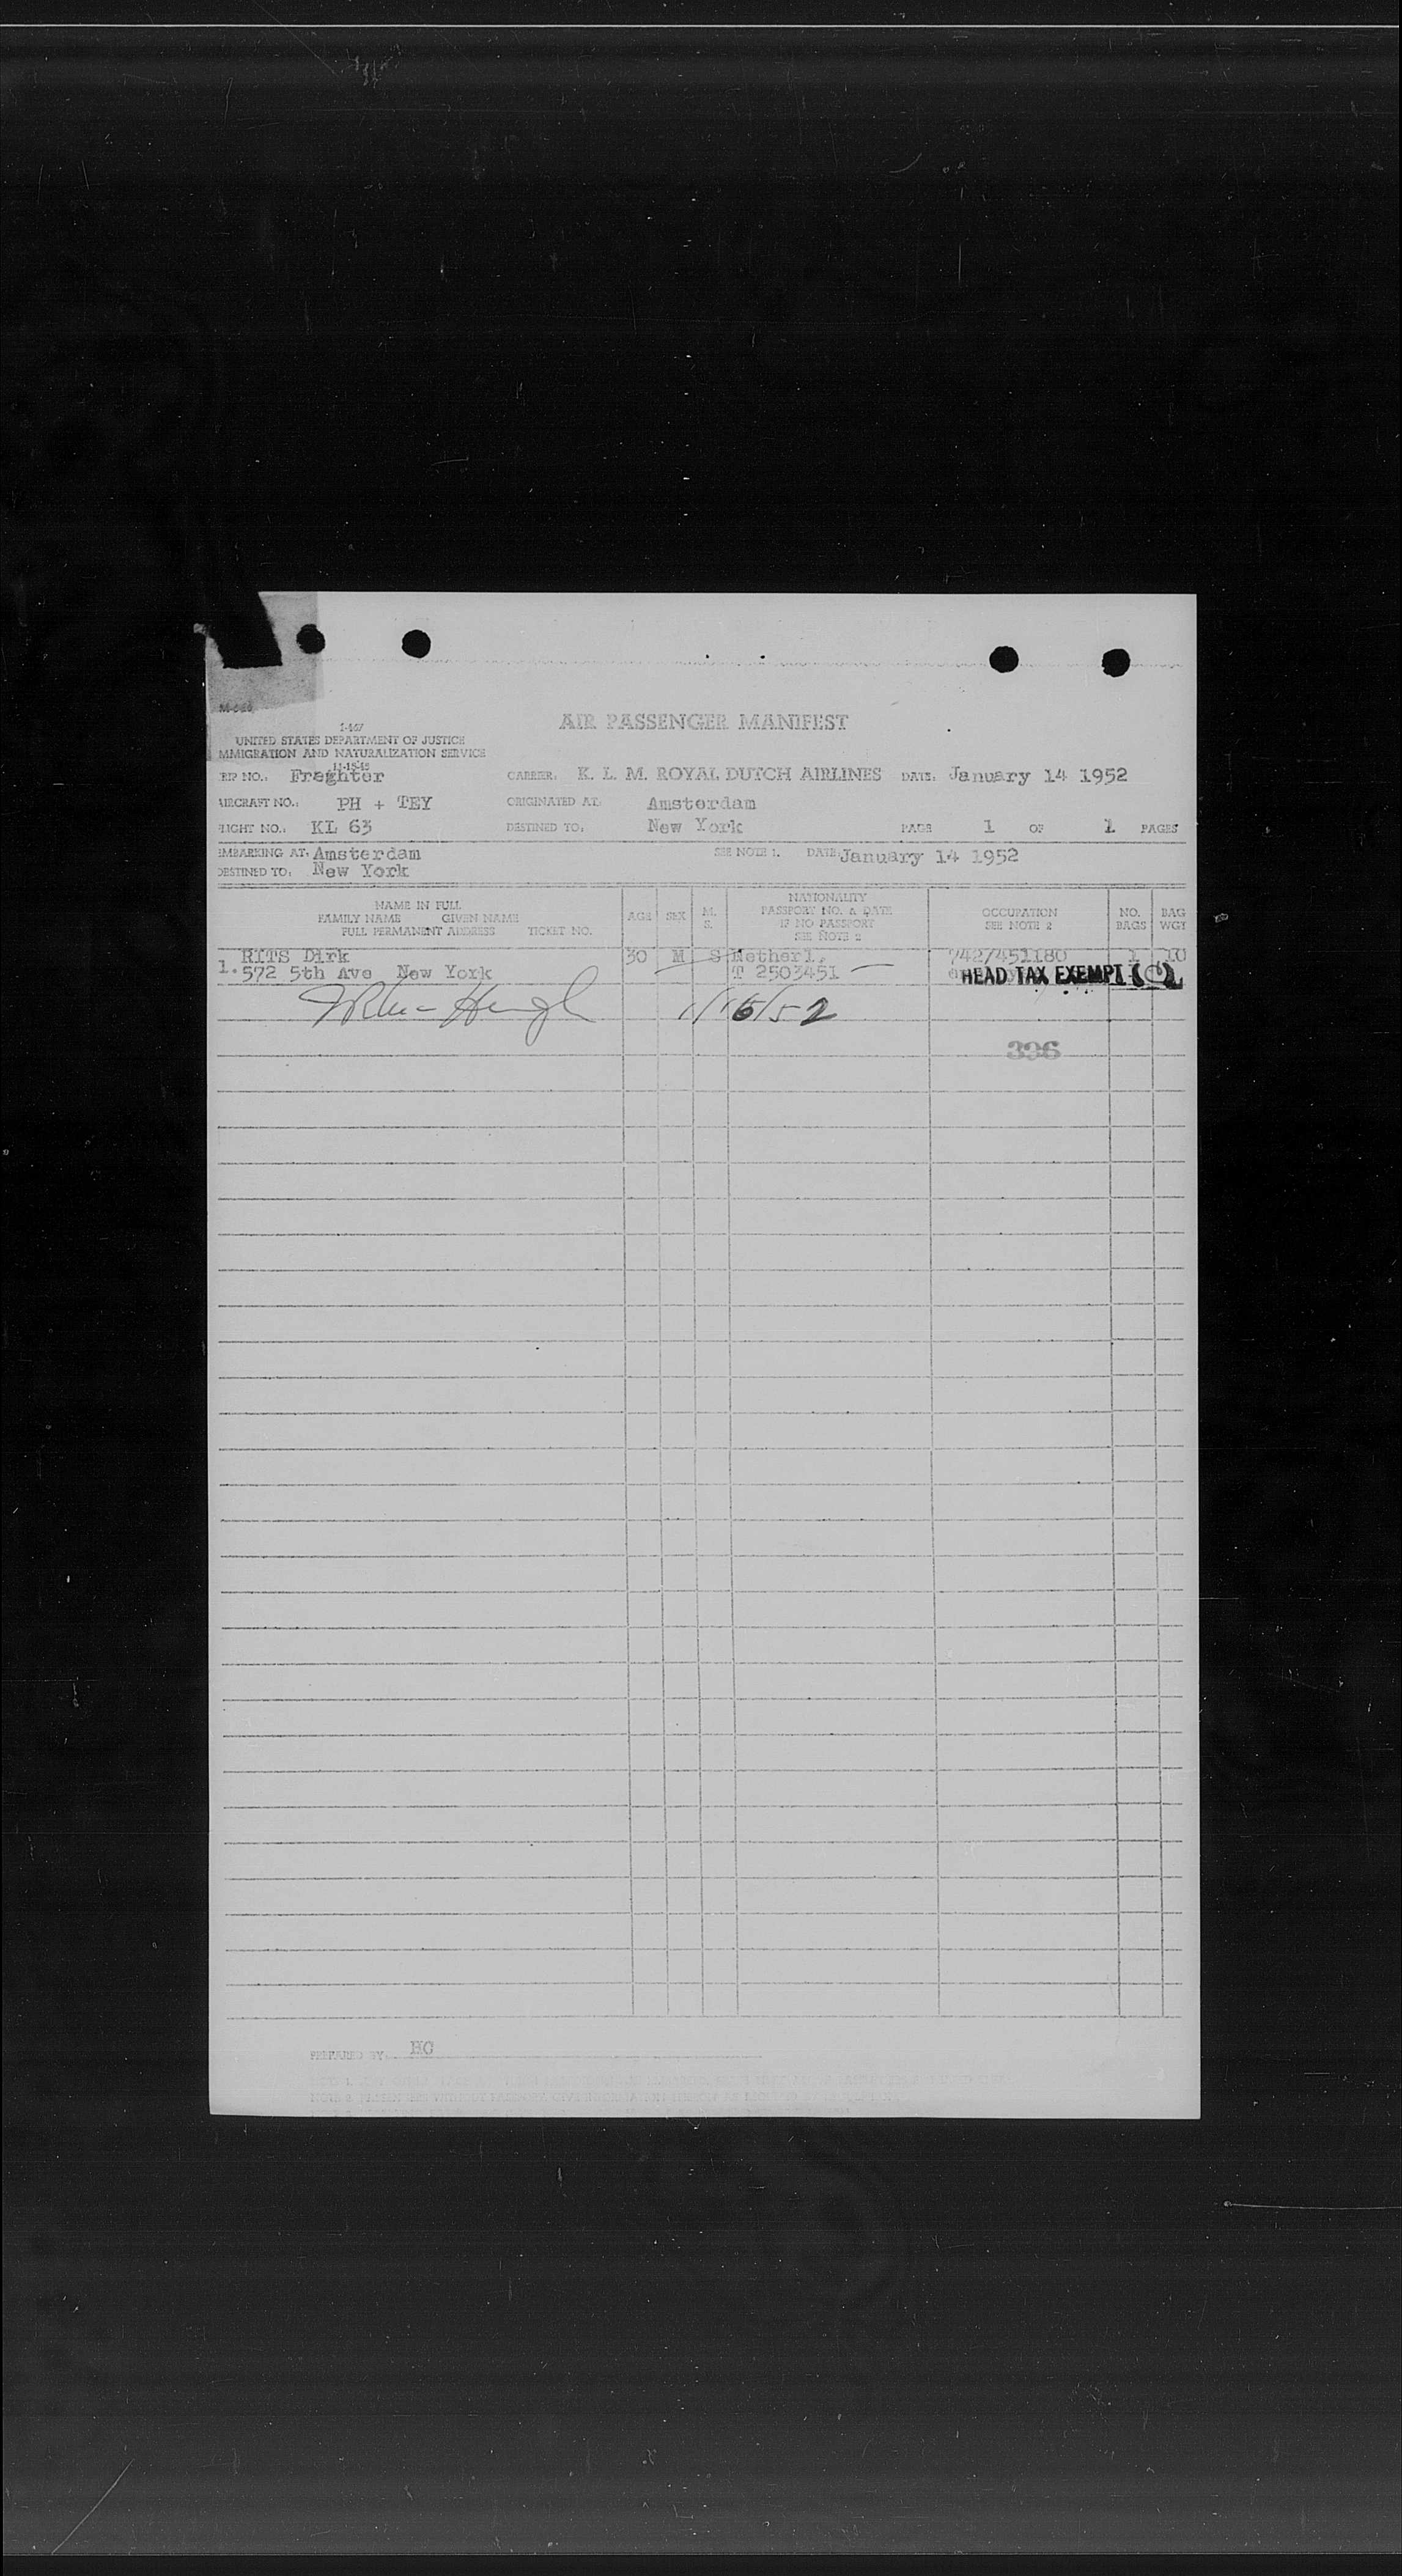 I-467
AIR PASSENGER MANIFEST
UNITED STATES DEPARTMENT OF JUSTICE
MMIGRATION AND NATURALIZATION SERVICE
11-15-45
RIP NO.: Freghter CARRIER: K. L. M. ROYAL DUTCH AIRLINES DATE: January 14 1952
AIRCRAFT NO.: PH + TEY ORIGINATED AT: Amsterdam
LIGHT NO.: KL 63 DESTINED TO: New York PAGE 1 OF 1 PAGES
EMBARKING AT: Amsterdam SEE NOTE 1. DATE: January 14 1952
DESTINED TO: New York
NAME IN FULL
FAMILY NAME GIVEN NAME
FULL PERMANENT ADDRESS TICKET NO.
AGE
SEX
M.
S.
NATIONALITY
PASSPORT NO. & DATE
IF NO PASSPORT
SEE NOTE 2
OCCUPATION
SEE NOTE 2
NO.
BAGS
BAG
WGT
RITS Dirk 30 M S Netherl. 742/451180 1 10
1. 572 5th Ave New York T 2503451
HEAD TAX EXEMPT
1/16/52
336
PREPARED BY: HG